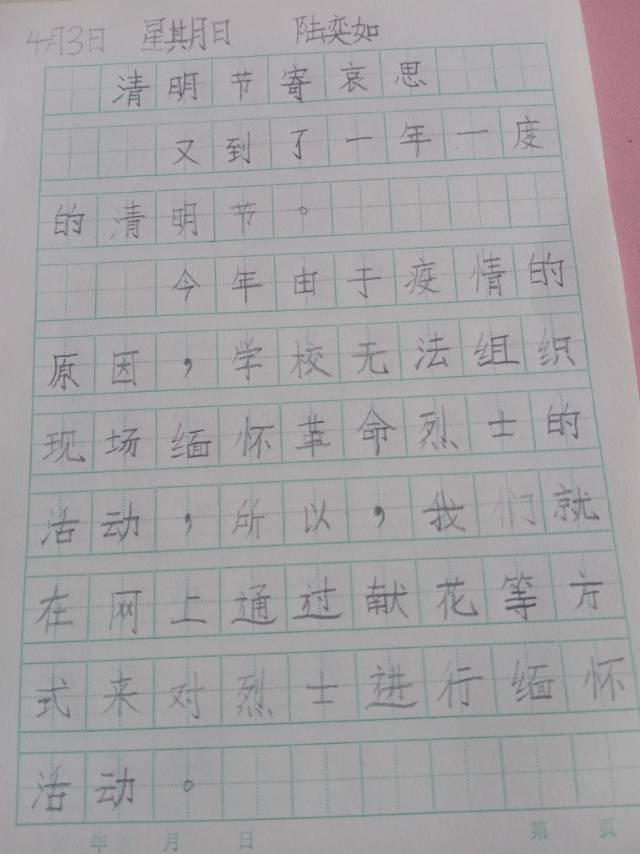 4月3日 星期日 陆奕如
清明节寄哀思
又到了一年一度
的清明节。
今年由于疫情的
原因，学校无法组织
现场缅怀革命烈士的
活动，所以，我们就
在网上通过献花等方
式来对烈士进行缅怀
活动。
年 月 日 第 页